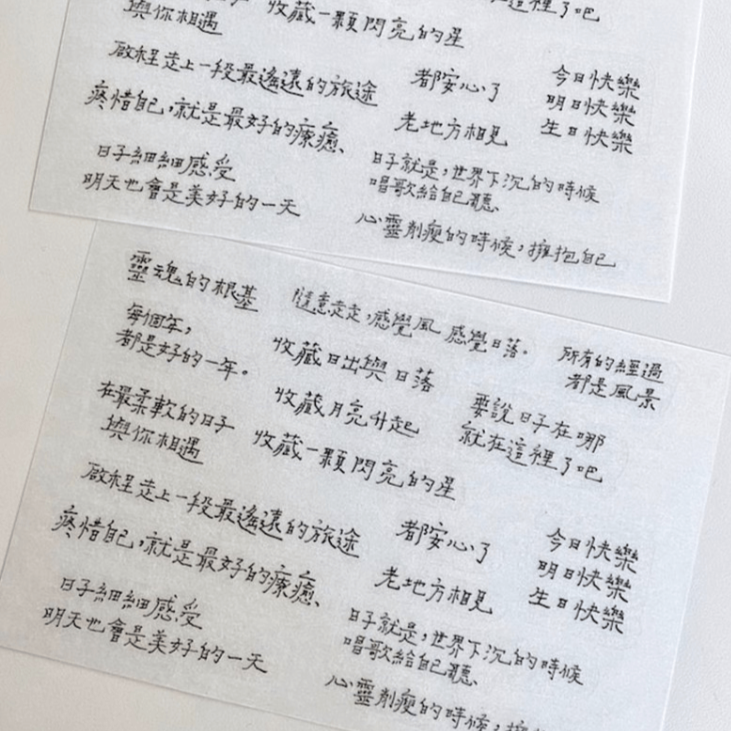 與你相遇
收藏一顆閃亮的星
在這裡了吧
啟程走上一段最遙遠的旅途
都安心了
今日快樂
明日快樂
生日快樂
疼惜自己,就是最好的療癒、
老地方相見
日子細細感受
明天也會是美好的一天
日子就是,世界下沉的時候
唱歌給自己聽、
心靈削瘦的時候,擁抱自己
靈魂的根基
隨意走走,感覺風 感覺日落.
所有的經過
都是風景
每個年,
都是好的一年。
收藏日出與日落
收藏月亮升起
要說日子在哪
就在這裡了吧
在最柔軟的日子
與你相遇
收藏一顆閃亮的星
啟程走上一段最遙遠的旅途
都安心了
今日快樂
明日快樂
生日快樂
疼惜自己,就是最好的療癒、
老地方相見
日子細細感受
明天也會是美好的一天
日子就是,世界下沉的時候
唱歌給自己聽、
心靈削瘦的時候,擁